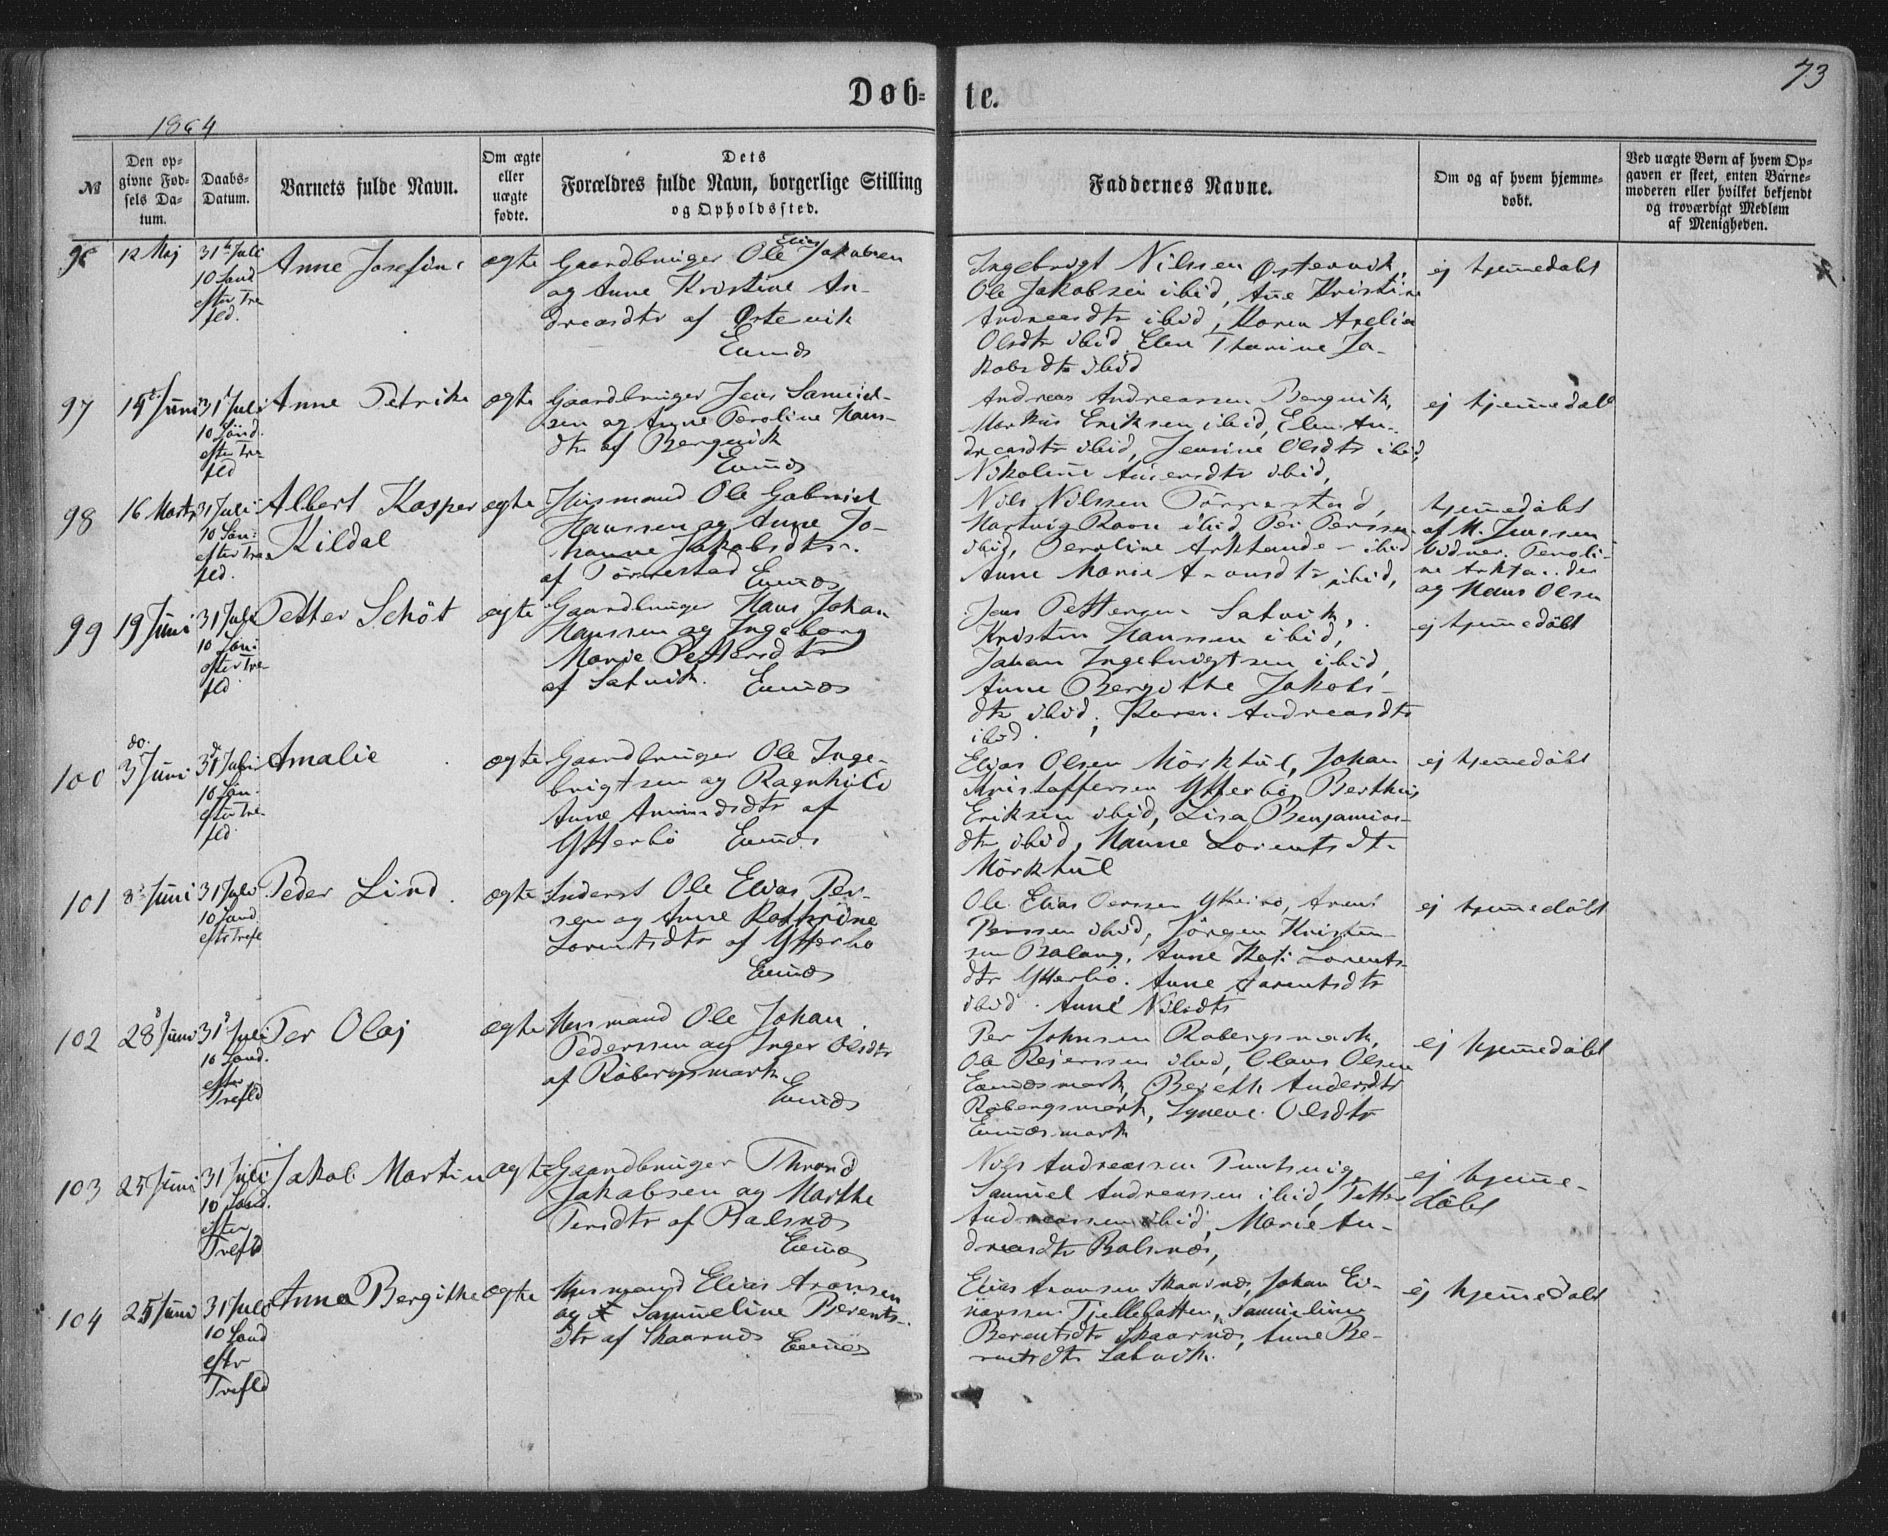 Døb=
te.
73
1864
№
Den op-
givne Fød-
sels Da-
tum.
Daabs-
Datum.
Barnets fulde Navn.
Om ægte
eller
uægte
fødte.
Dets
Forældres fulde Navn, borgerlige Stilling
og Opholdssted.
Faddernes Navne.
Om og af hvem hjemme-
døbt.
Ved uægte Børn af hvem Op-
gaven er skeet, enten Barne-
moderen eller hvilket bekjendt
og troværdigt Medlem
af Menigheden.
96
12 Maj
31te Juli
10 Sønd
efter Tre
fld.
Anne Josefine
ægte
Gaardbruger Ole Elias Jakobsen
og Anne Kristine An-
dreasdtr af Østervik
Evenæs
Ingebrigt Nilssen Østervik,
Ole Jakobsen ibid, Ane Kristine
Andreasdtr ibid, Karen Axelia
Olsdtr ibid. Elen Tharine Ja-
kobsdtr ibid
ej hjemmedøbt
97
15t Juni
31t Juli
10 Sønd.
efter Tre-
fld
Anne Petrike
ægte
Gaardbruger Jens Samuel-
sen og Anne Peroline Hans-
dtr af Bergvik
Evenæs
Andreas Andreassen Bergvik,
Markus Eriksen ibid, Elen An-
dreasdtr ibid, Jensine Olsdtr ibid,
Nikoline ibid,
ej hjemmedøbt
98
16 Marts
31 Juli
10 Søn:
efter Tre
fld.
Albert Kasper
Kildal
ægte
Husmand Ole Gabriel
Hanssen og Anne Jo-
hanne Jakobsdtr.
af Tørrestad Evenæs
Nils Nilssen Tørrestad,
Hartvig Ravn ibid, Per Perssen
ibid, Peroline Arktande - ibid
Anne Marie Aronsdtr ibid,
hjemmedøbt
af H. Jenssen
Vidner. Peroli-
ne
og Hans Olsen
99
19 Juni
31 Juli
10 Søn:
efter Tre-
fld
Petter Schøt
ægte
Gaardbruger Hans Johan
Hanssen og Ingeborg
Marie Pettersdtr
af Satvik. Evenæs
Jens Pettersen Satvik,
Kristen Hanssen ibid,
Johan Ingebrigtsen ibid,
Anne Bergithe Jakobs-
dtr ibid, Karen Andreasdtr
ibid.
ej hjemmedøbt
100
do.
3 Juni
31 Juli
10 Søn.
efter Tre-
fld.
Amalie
ægte
Gaardbruger Ole Inge-
brigtsen og Ragnhild
Anne Amundsdtr af
Ytterbø Evenæs
Elias Olsen Mørkhul, Johan
Kristoffersen Ytterbø, Berthus
Eriksen ibid, Lisa Benjamins-
dtr ibid, Hanne Lorentsdtr
Mørkhul
ej hjemmedøbt
101
8 Juni
31 Juli
10 Sønd.
eftr Trefl
Peder Lind.
ægte
Inderst Ole Elias Per-
sen og Anne Kathrine
Lorentsdtr af Ytterbø
Evenæs
Ole Elias Perssen Ytterbø,
Perssen ibid, Jørgen Kristen-
sen Balang, Anne Kat. Lorents-
dtr Ytterbø. Anne Larentsdtr
ibid. Anne Nilsdtr
ej hjemmedøbt
102
28 Juni
31 Juli
10 Sønd.
efter
Trefld
Per Olaj
ægte
Husmand Ole Johan
Pederssen og Inger Olsdtr
af Røbergsmark
Evenæs
Per Johnsen Røbergsmark,
Ole Rejerssen ibid, Claus Olsen
Evenæsmark, Bereth Andersdtr
Røbergsmark, Syneve Olsdtr
Evenæsmark
ej hjemmedøbt
103
25 Juni
31 Juli
10 Sønd.
efter
Trefld
Jakob Martin
ægte
Gaardbruger Thrond
Jakobsen og Marthe
Persdtr af Balsnæs
Evenæs
Nils Andreassen
Samuel Andreassen ibid, Petter
Andreassen ibid, Marie An-
dreasdtr Balsnæs,
ej hjemme-
døbt
104
25 Juni
31 Juli
10 Sønd
eftr
Trefld
Anna Bergithe
ægte
Husmand Elias Aronsen
og Samueline Berents-
dtr af Skaarnæs Evenæs
Elias Aronsen Skaarnæs, Johan Ei-
narssen Fjellebotten, Samueline
Berentsdtr Skaarnæs, Anne Be-
rentsdtr Satvik.
ej hjemmedøbt